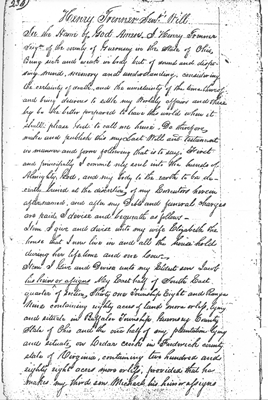 Henry Fomner Sent. Will.
In the Name of God Amen, I Henry Fomner
Sen. of the county of Guernsey in the State of Ohio
Being sick and weak in body but of sound and dispo-
sing mind, memory and understanding, considering
the certainty of death, and the uncertainty of the time thereof
and being desirous to settle my worldly affairs and there
by be the better prepared to leave this world when it
shall please God to call me hence, Do therefore
make and publish this my last Will and Testament
in manner and form following that is to say, First
and principally I commit my soul into the hands of
Almighty God, and my body to the earth to be de-
cently buried at the discretion of my Executors herein
afternamed, and after my Debts and funeral charges
are paid I devise and bequeath as follows -
Item I give and devise unto my wife Elizabeth the
house that I now live in and all the house hold
during her lifetime and one cow -
Item I Give and Devise unto my Eldest son Jacob
his heirs or assigns My East half of South East
quarter of Section Thirty one Township Eight and Range
Nine containing eighty acres of land more or less lying
and situate in Buffalo Township Guernsey County
State of Ohio and the one half of my plantation lying
and situate, on Cedar creek in Frederick county
state of Virginia, containing two hundred and
eighty eight acres more or less, provided that he
makes my third son Michael his heirs or assigns